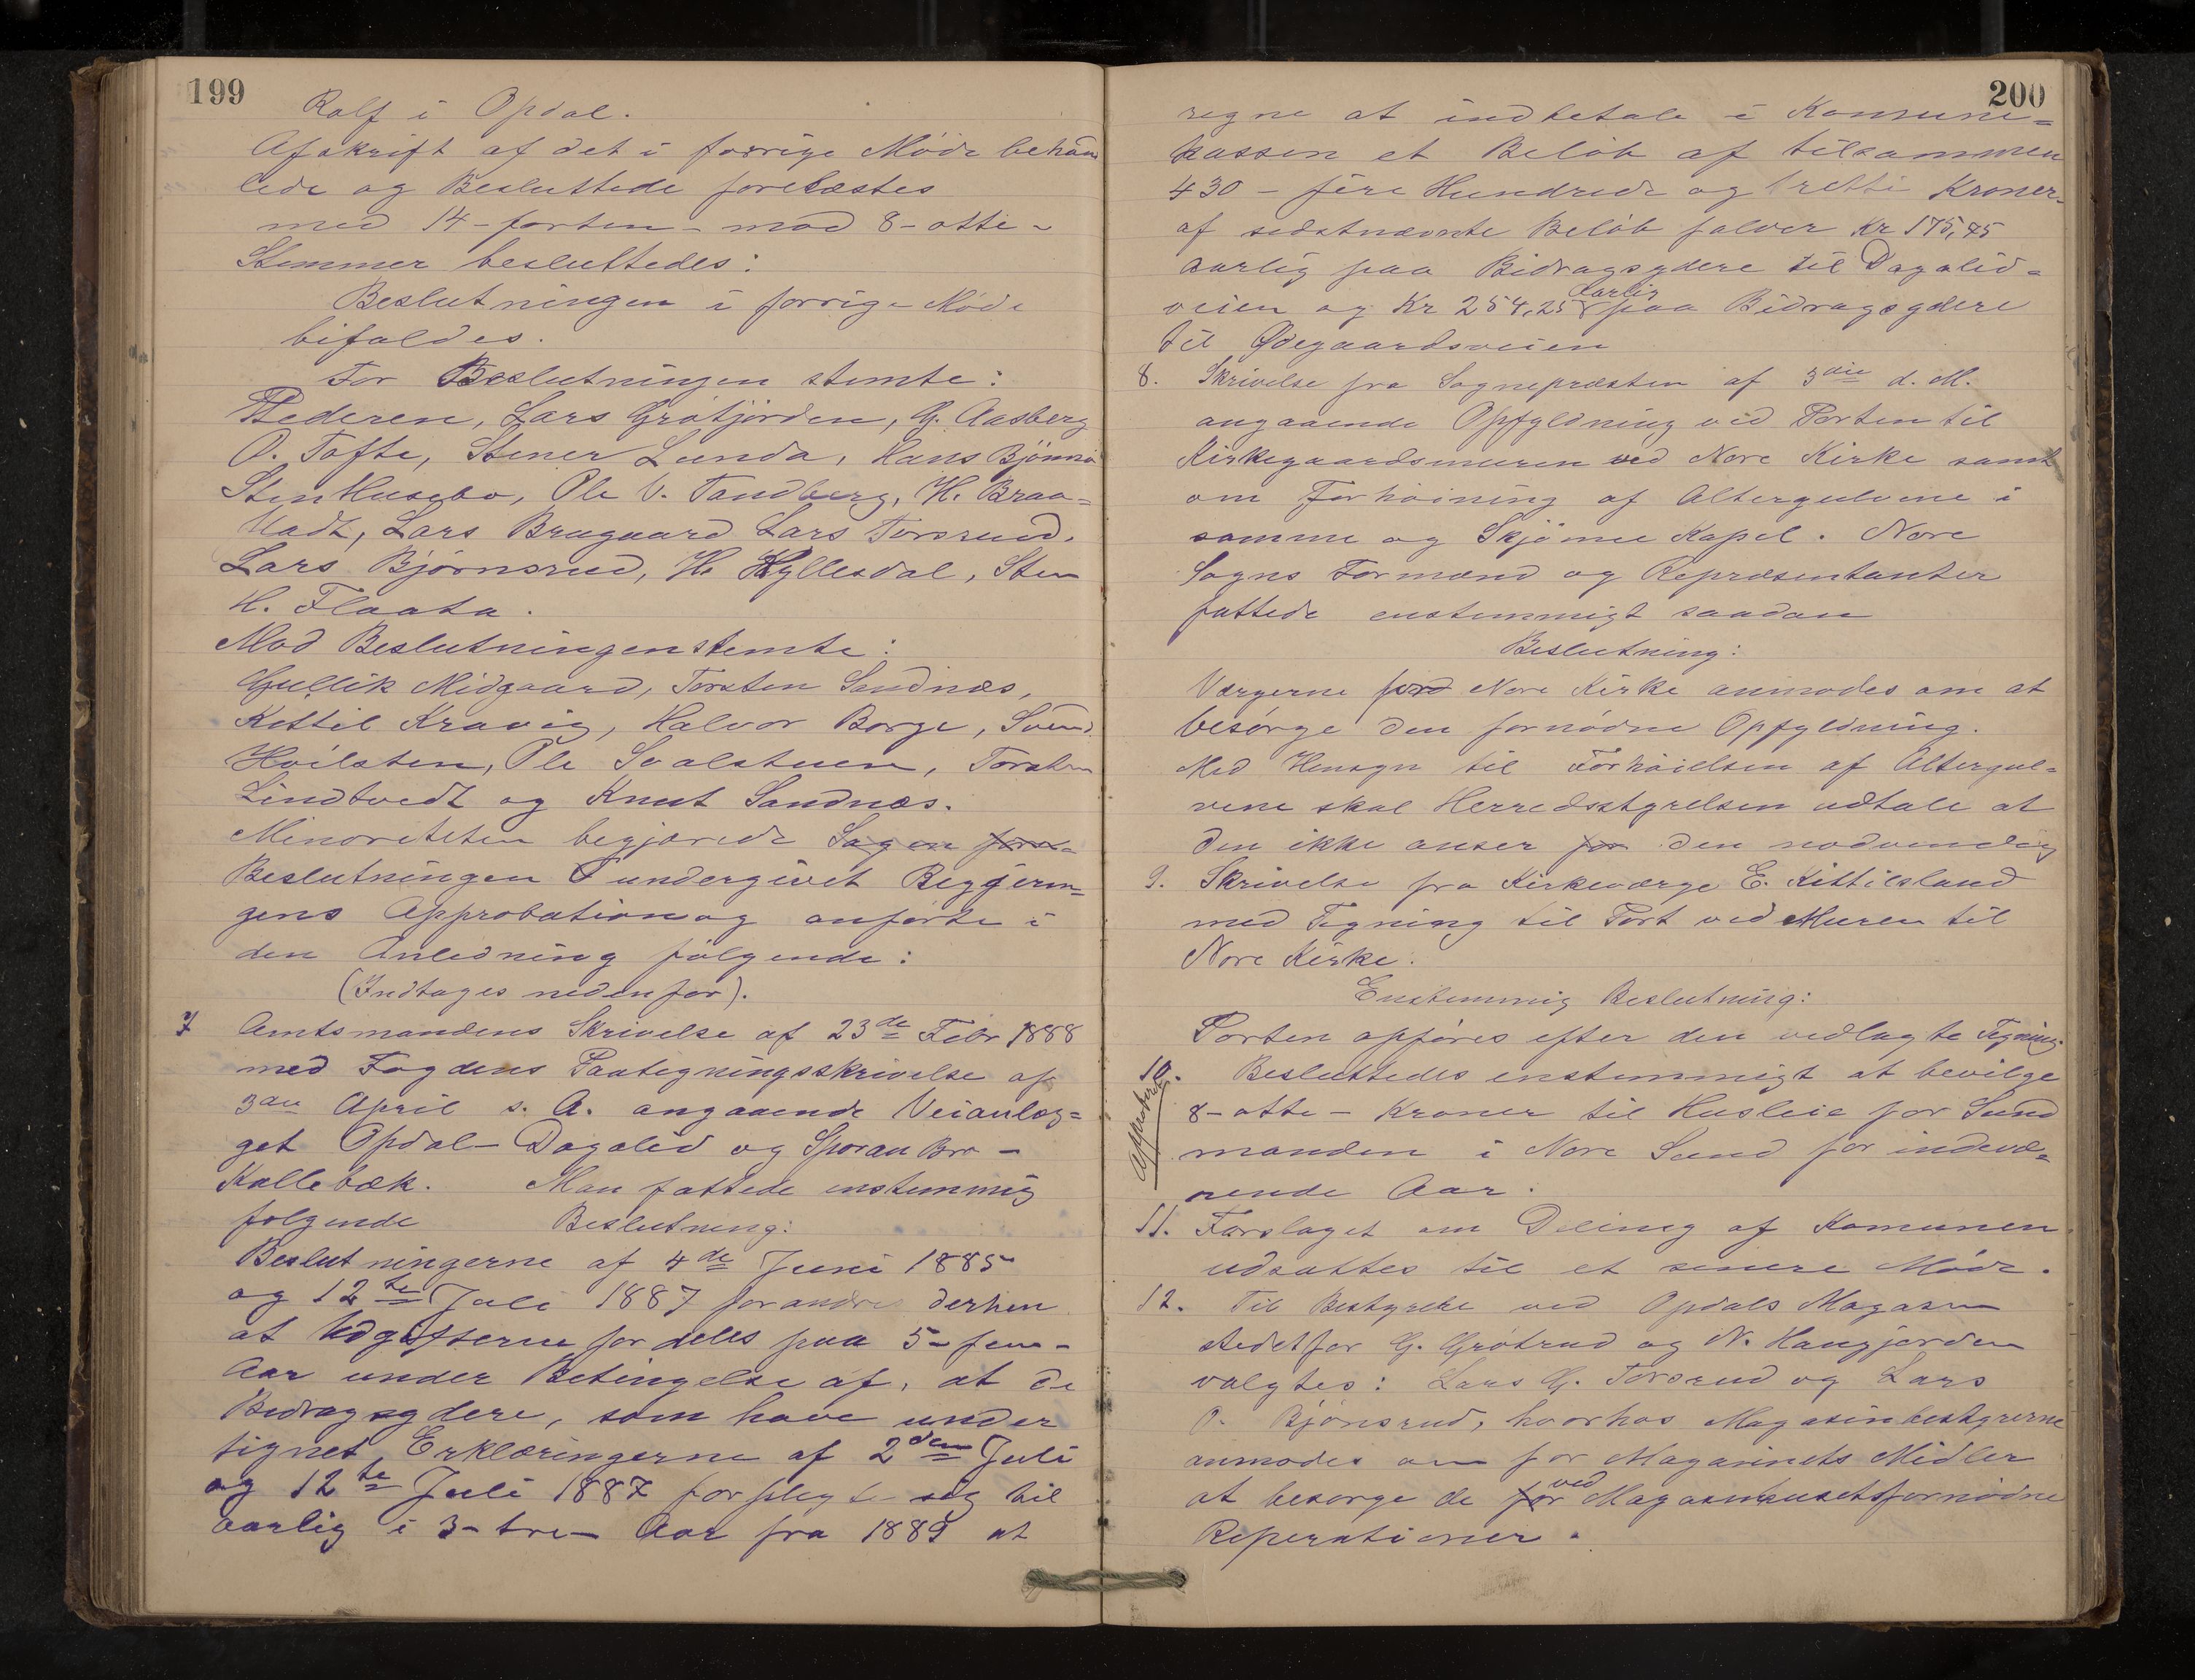 199
Rolf i Opdal.
Afskrift af det i forrige Møde behand
lede og Besluttede forelæstes
med 14 - forten - mod 8 - otte -
Stemmer besluttedes:
Beslutningen i forrige Møde
bifaldes.
For Beslutningen stemte:
Lars Grøtjorden, G. Aasberg
O. Tofte, Stener Lunda, Hans Bjønnø
Sten Husebo, Ole V. Tandberg, H. Braa=
Lars Brugaard Lars Torsrud.
Lars Bjørnsrud, H. Hyllesdal, Sten
H. Flaata.
Mod Beslutningen stemte:
Gullik Midgaard, Torsten Sandnæs,
Kettil Kravig, Halvor Borge, Svend
Hvilsten, Ole Svalstuen, Torsten
Lindtvedt og Knut Sandnæs.
Minoriteten begjærede Sagen
Beslutningen undergivet Regjerin=
gens Approbation og anførte i
den Anledning følgende:
(Indtages nedenfor).
7 Amtsmandens Skrivelse af 23de Febr 1888
med Fogdens Paategningsskrivelse af
3die April s. A. angaaende Veianlæg=
get Opdal - Dagalid og Sporan Bro -
Kallebæk. Man fattede enstemmig
følgende Beslutning:
Beslutningerne af 4de Juni 1885
og 12te Juli 1887 forandres derhen
at Udgifterne fordeles paa 5 - fem -
Aar under Betingelse af, at de
Bidragsydere, som have under
tignet Erklæringerne af 2den Juli
og 12te Juli 1887 forpligte sig til
aarlig i 3 - tre - Aar fra 1889 at
200
regne at indbetale i Komune=
kassen et Beløb af tilsammen
430 - fire Hundrede og tretti Kroner -
af sidstnævnte Beløb falder Kr 175,75
aarlig paa Bidragsydere til Dagalid=
aarlig
veien og Kr 254,25 paa Bidragsydere
til Ødegaardsveien
8. Skrivelse fra Sognepræsten af 3die d. M.
angaaende Opfyldning ved Porten til
Kirkegaardsmuren ved Nore Kirke samt
om Forhøining af Altergulvene i
samme og Skjønne Kapel. Nore
Sogns Formænd og Repræsentanter
fattede enstemmigt saadan
Beslutning:
Værgerne for Nore Kirke anmodes om at
besørge den fornødne Opfyldning.
Med Hensyn til Forhøielsen af Altergul=
vene skal Herredsstyrelsen udtale at
den ikke anser for den nødvendig
9. Skrivelse fra Kirkeværge E. Kittilsland
med Tegning til Port ved Muren til
Nore Kirke.
Enstemmig Beslutning:
Porten opføres efter den vedlagte Tegning.
10. Besluttedes enstemmigt at bevilge
Approberet
8 - otte - Kroner til Husleie for Lens
manden i Nore Sund for indevæ=
rende Aar.
11. Forslaget om Deling af Komunen
udsattes til et senere Møde.
12. Til Bestyrere ved Opdals Magasin
stedetfor G. Grøtrud og N. Haugjorden
valgtes: Lars G. Torsrud og Lars
O. Bjønsrud, hvorhos Magasinbestyrerne
anmodes om for Magasinets Midler
ved
at besørge de for Magasinhuset fornødne
Reperationer.